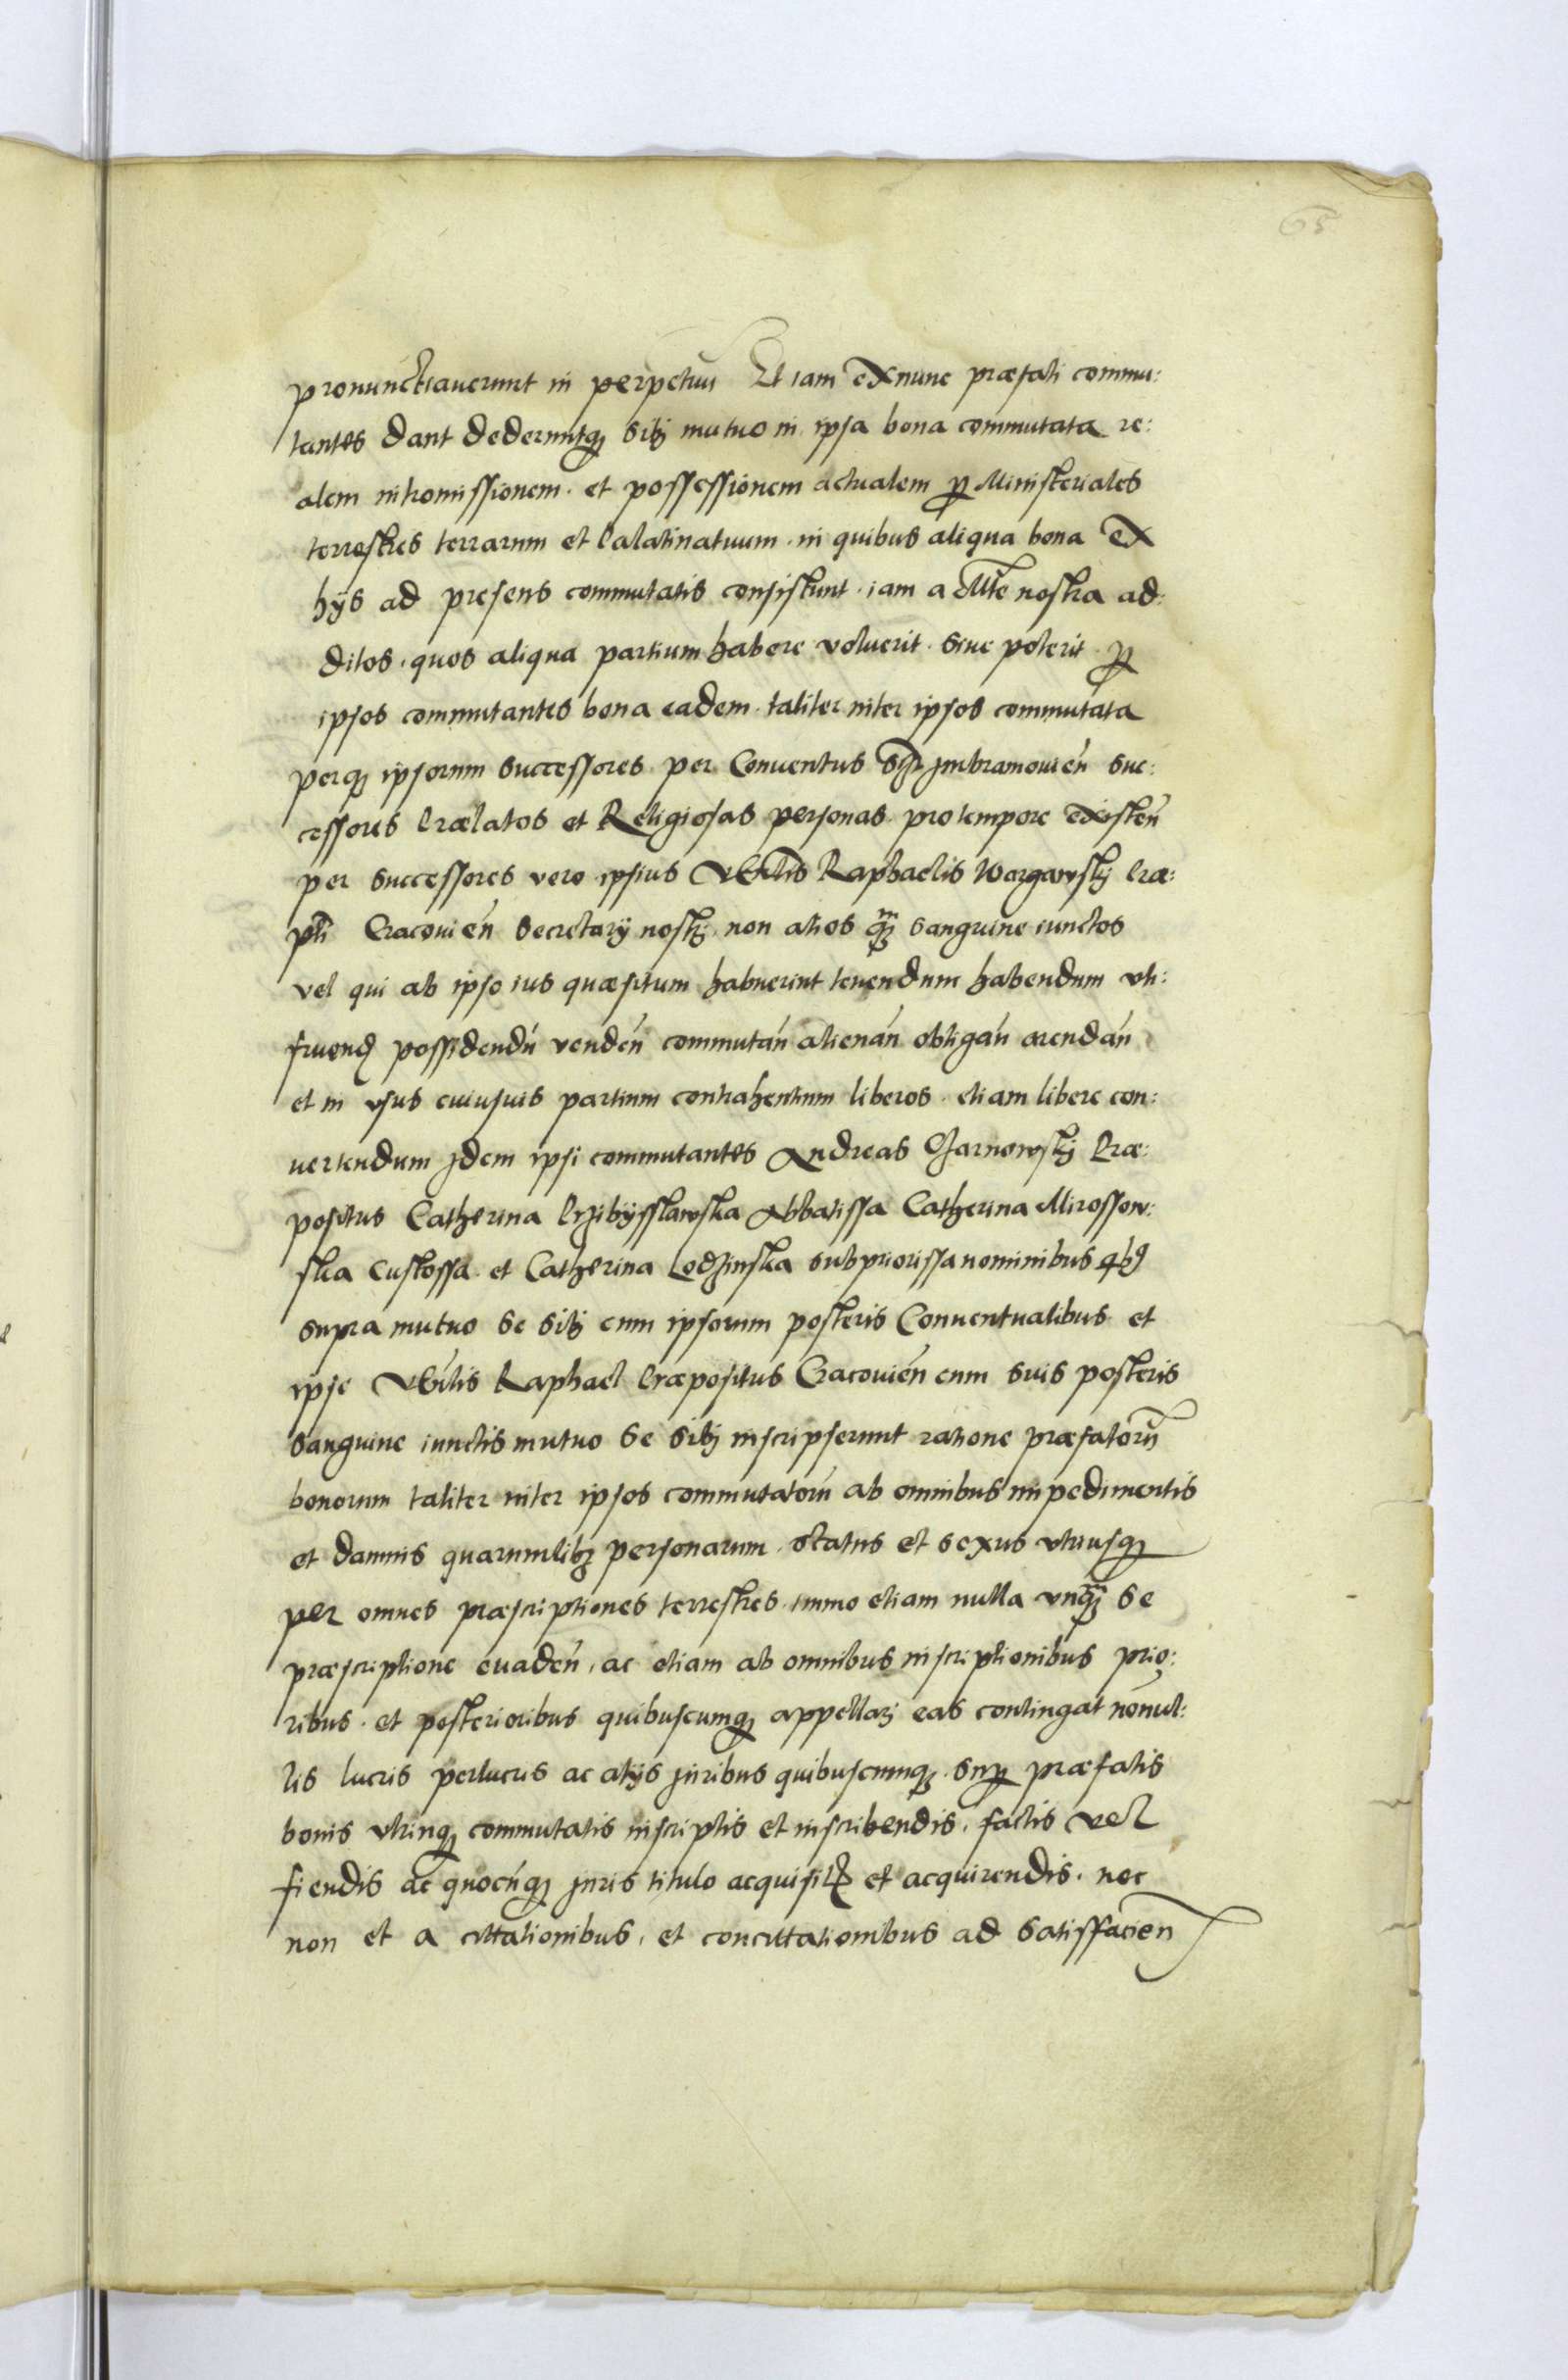 65
pronunctiaverunt in perpetuũ Et iam exnunc præfati commu:
tantes dant dederuntq3 sibj mutuo in ipsa bona commutata re:
alem intromissionem. et possessionem actualem p Ministeriales
terrestres terrarum et Palatinatuum. in quibus aliqua bona ex
hÿs ad presens commutatis consistunt. iam a Mte nostra ad:
ditos. quos aliqua partium habere voluerit. siue poterit. p
ipsos commutantes bona eadem. taliter inter ipsos commutata
perq3 ipsorum successores. per Conuentus Imbramouień suc:
cessores Prælatos et Religiosas personas. pro tempore existeñ
per successores vero ipsius Vbilis Raphaelis Wargawskj Præ:
pti Cracouień Secretarÿ nostrj. non alios q̃3 sanguine iunctos
vel qui ab ipso ius quæsitum habuerint tenendum habendum vti:
fruend possidendũ vendeń commutań alienań obligań arendań
et in vsus cuiusuis partium contrahentium liberos. etiam libere con:
uertendum Idem ipsi commutantes Andreas Czarnowskj Præ:
positus Catherina Przibÿsslawska Abbatissa Catherina Mirossow:
ska Custossa. et Catherina Lodzinska subpriorissa nominibus qb9
supra mutuo se sibj cum ipsorum posteris Conuentualibus et
ipse Vbilis Raphael Præpositus Cracouień cum suis posteris
sanguine iunctis mutuo se sibj inscripserunt ratione præfatorũ
bonorum taliter inter ipsos commutatorũ ab omnibus impedimentis
et damnis quarumlib3 personarum. status et sexus vtriusq3
per omnes præscriptiones terrestres. immo etiam nulla vnq̃3 se
præscriptione euadeń, ac etiam ab omnibus inscriptionibus prio:
ribus. et posterioribus quibuscumq3 appellarj eas contingat nõnul:
lis lucris perlucris ac alÿs juribus quibuscumq3. sup præfatis
bonis vtrinq3 commutatis inscriptis et inscribendis. factis vel
fiendis ac quocũq3 juris titulo acquisitis et acquirendis. nec
non et a cittationibus, et concittationibus ad satisfacień